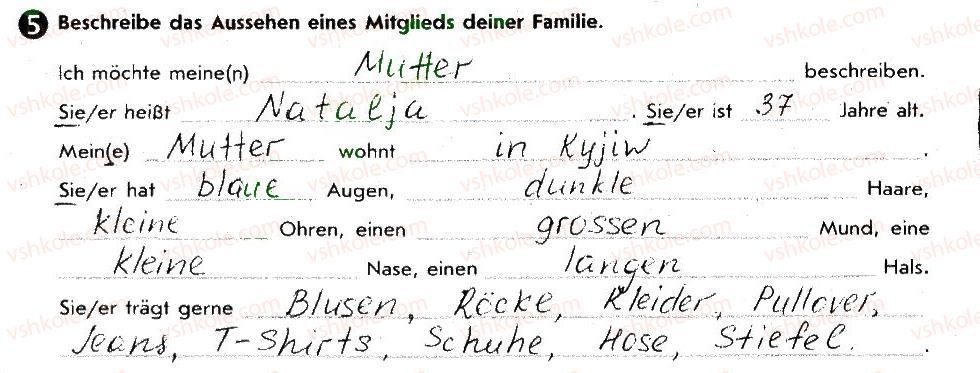 5 Beschreibe das Aussehen eines Mitglieds deiner Familie.
Ich möchte meine(n) Mutter beschreiben.
Sie/er heißt Natalja. Sie/er ist 37 Jahre alt.
Mein(e) Mutter wohnt in Kyjiw.
Sie/er hat blaue Augen, dunkle Haare,
kleine Ohren, einen grossen Mund, eine
kleine Nase, einen langen Hals.
Sie/er trägt gerne Blusen, Röcke, Kleider, Pullover,
Jeans, T-Shirts, Schuhe, Hose, Stiefel.